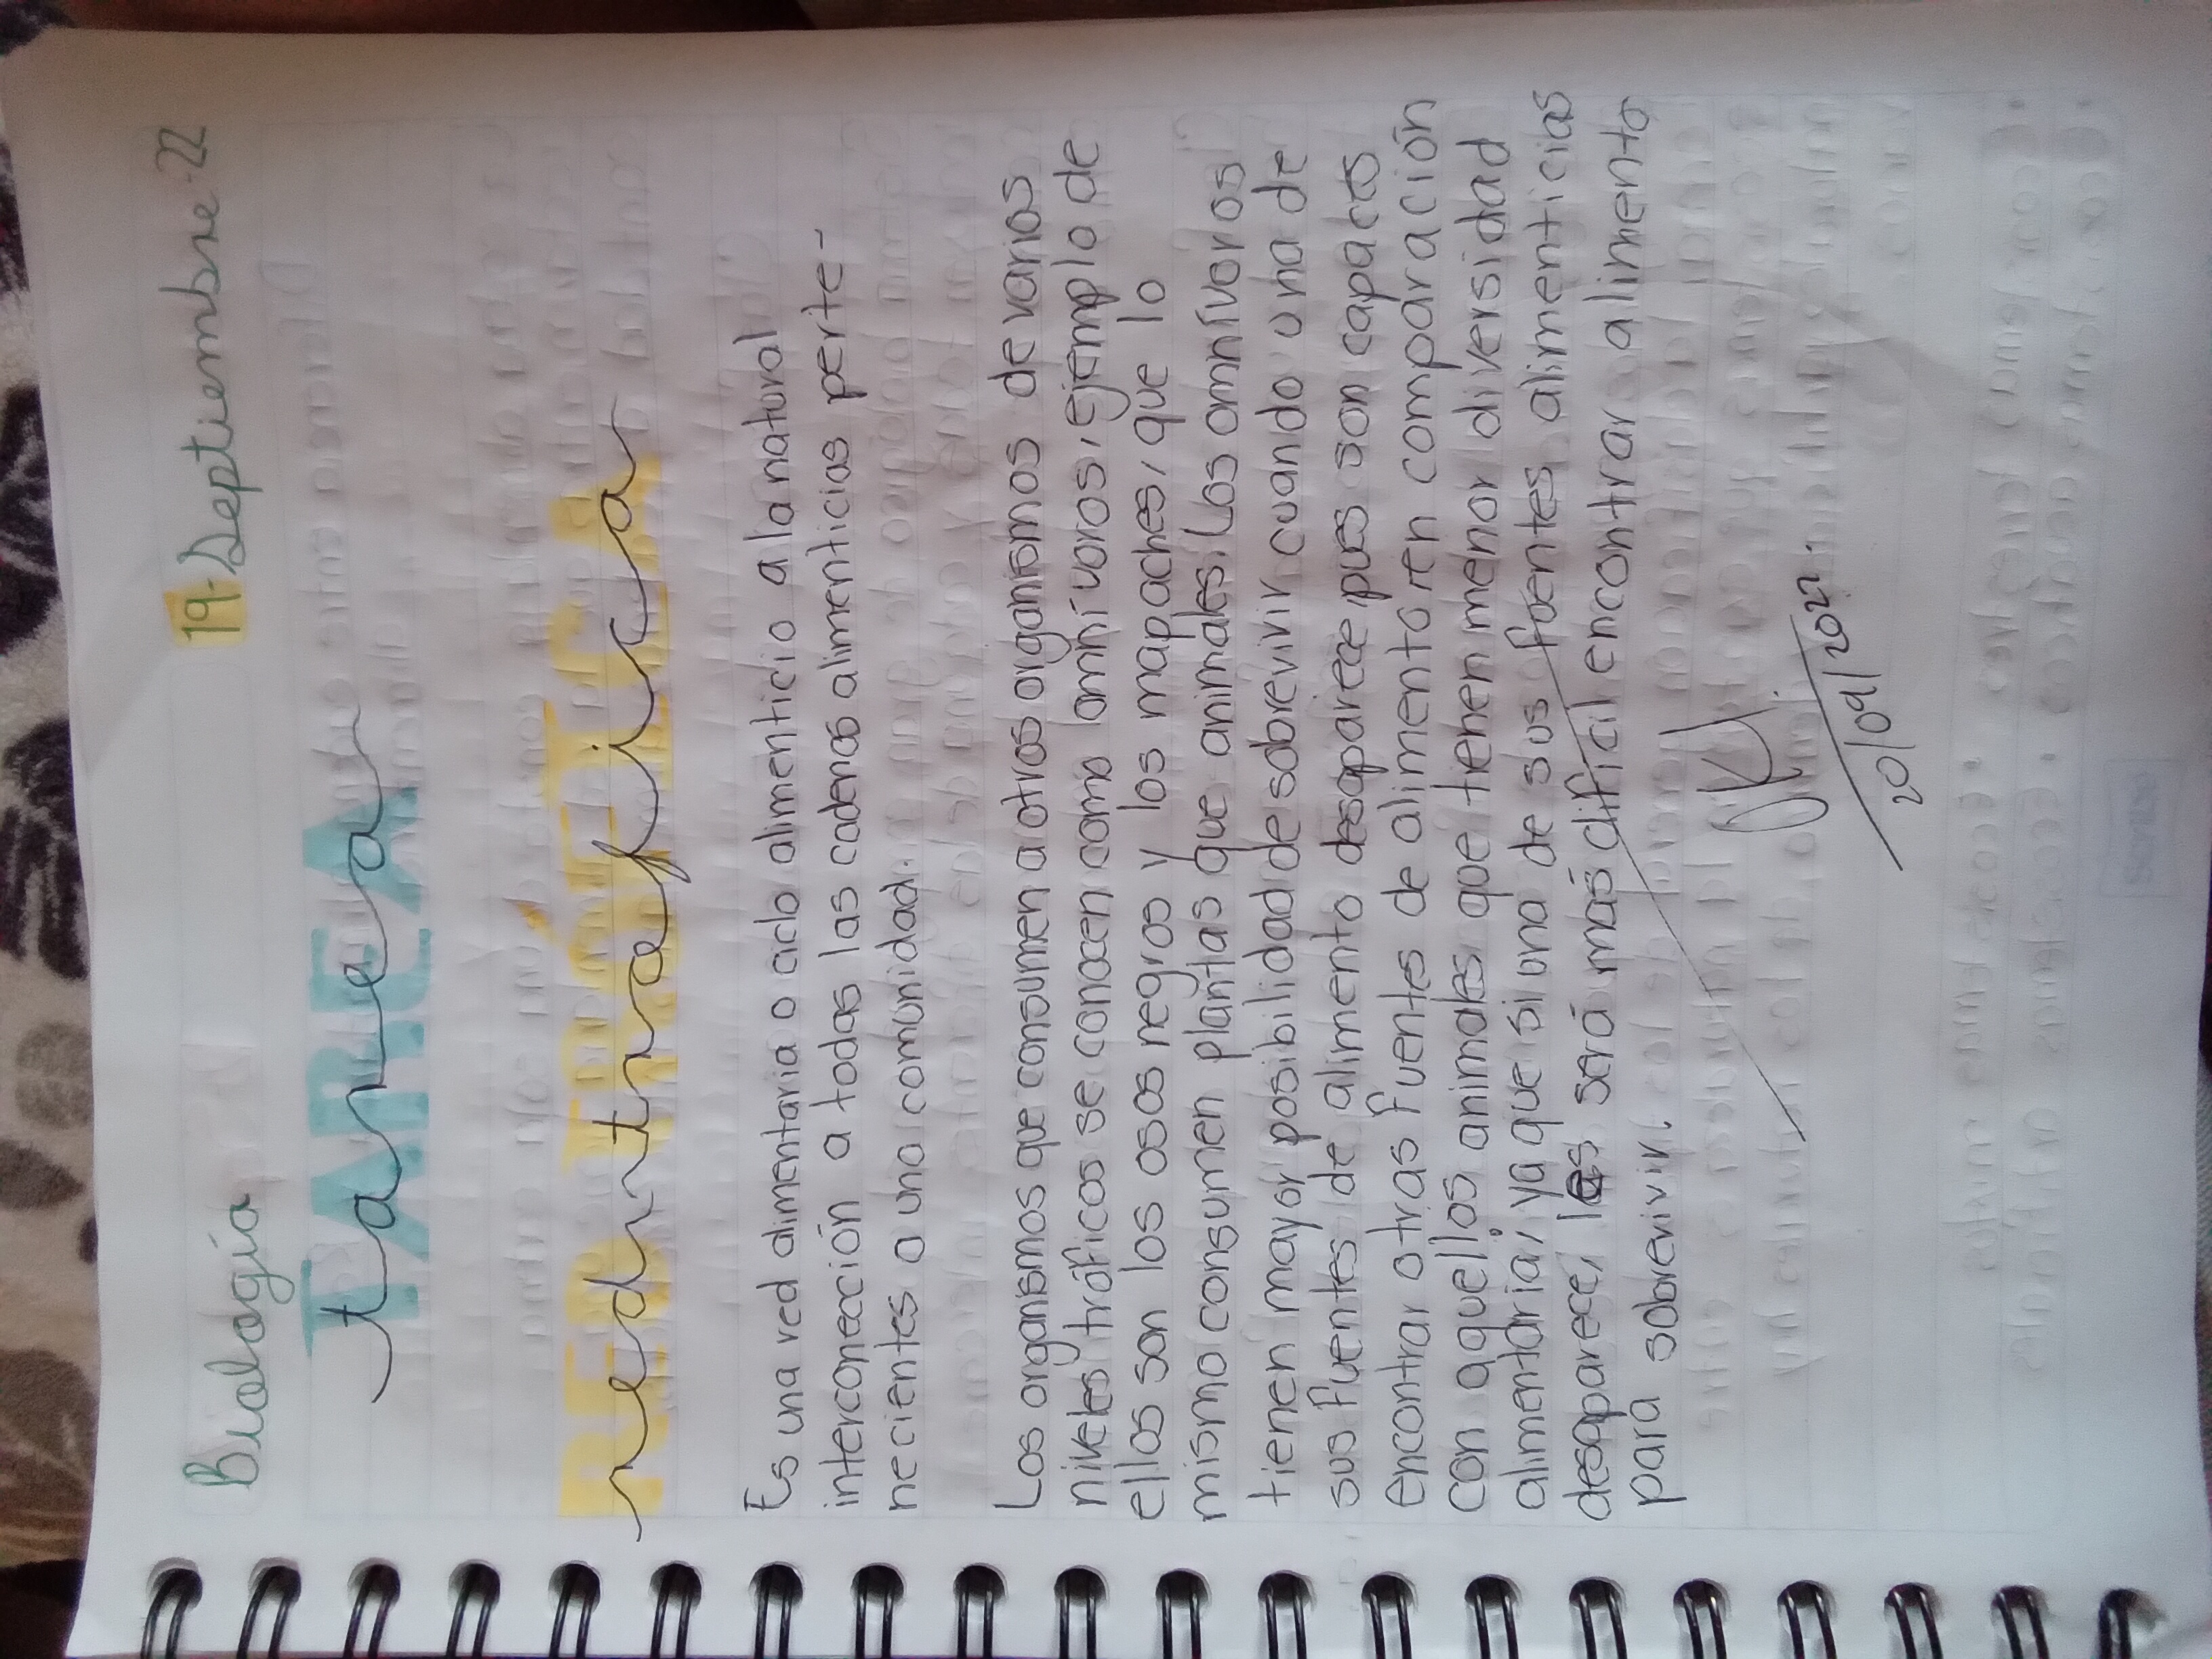 Biología 19-Septiembre-22
TAREA
tarea
RED TRÓFICA
red trofica
Es una red alimentaria o ciclo alimenticio a la natural
interconección a todas las cadenas alimenticias perte-
necientes a una comunidad.
Los organismos que consumen a otros organismos de varios
niveles tróficos se conocen como omnívoros, ejemplo de
ellos son los osos negros y los mapaches, que lo
mismo consumen plantas que animales. Los omnívoros
tienen mayor posibilidad de sobrevivir cuando una de
sus fuentes de alimento desaparece, pues son capaces
encontrar otras fuentes de alimento, en comparación
con aquellos animales que tienen menor diversidad
alimentaria, ya que si una de sus fuentes alimenticias
desaparece, les será más difícil encontrar alimento
para sobrevivir.
20/09/2022.